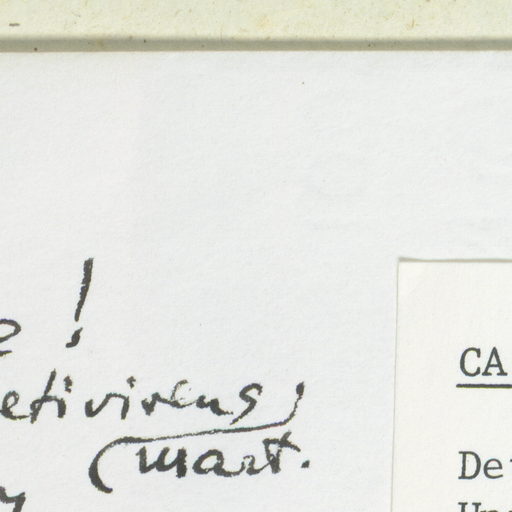 !
etivirens
(mart.
CA
De